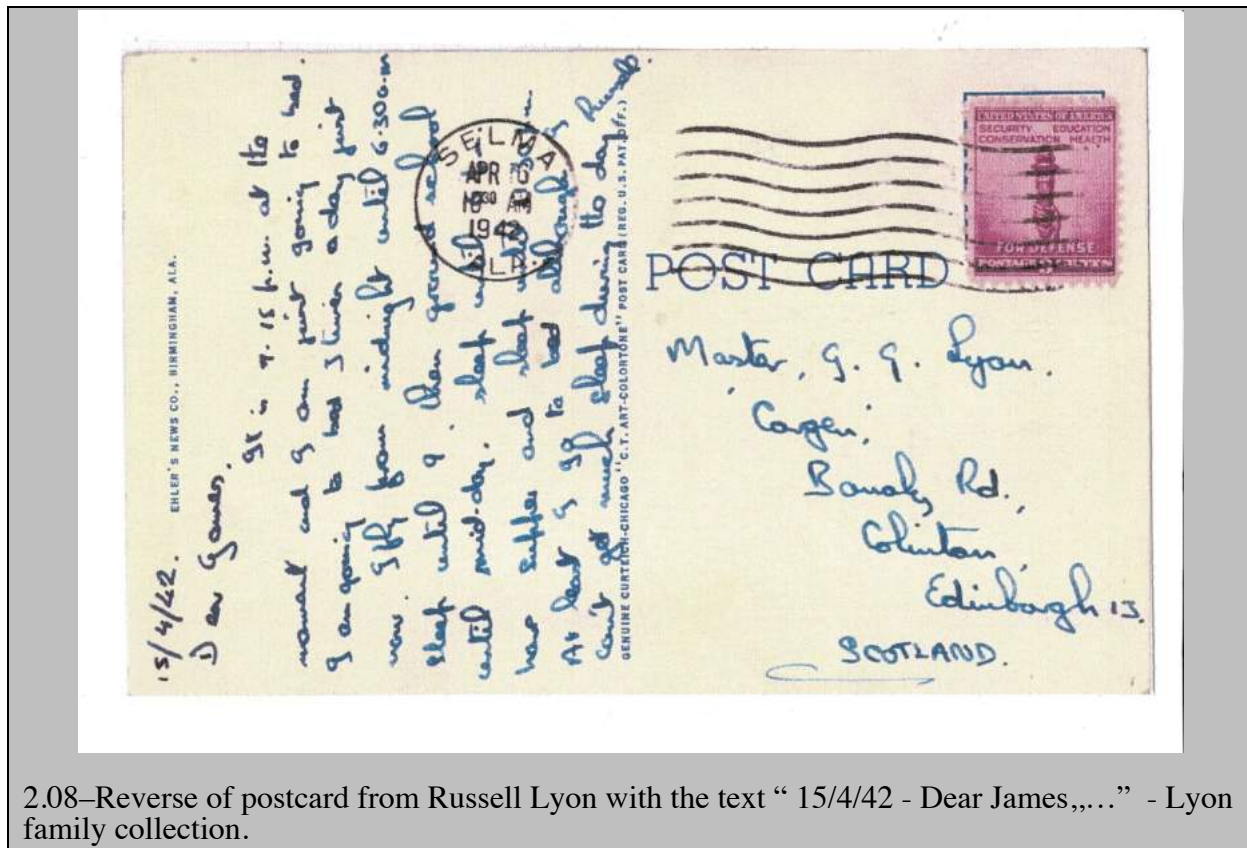 15/4/42.
EHLER'S NEWS CO., BIRMINGHAM, ALA.
Dear James,
It is 9.15 p.m. at the
moment and I am just going to bed.
I am going to bed 3 times a day just
now. I fly from midnight until 6.30 a.m
sleep until 9. then ground school
until mid-day. sleep until
have supper and sleep
At least I go to bed although I
can't get much sleep during the day. Russell.
GENUINE CURTEICH-CHICAGO "C.T. ART-COLORTONE" POST CARD (REG. U.S. PAT. OFF.)
SELMA
APR
1030 AM
1942
ALA.
UNITED STATES OF AMERICA
SECURITY EDUCATION
CONSERVATION HEALTH
FOR DEFENSE
POSTAGE 3 CENTS
POST CARD
Master, J. J. Lyon.
'Cargen',
Bonaly Rd.,
Colinton,
Edinburgh 13.
SCOTLAND.
2.08–Reverse of postcard from Russell Lyon with the text “ 15/4/42 - Dear James,,…” - Lyon
family collection.